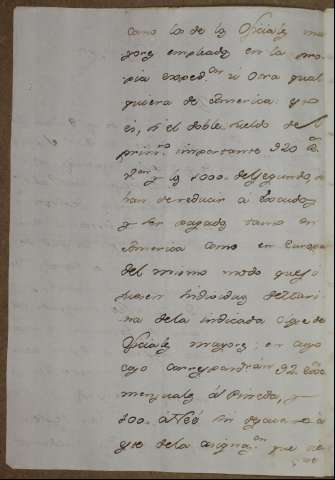 como la de los Oficiales ma
yores empleados en la pro
pia exped.on ú otra qual
quiera de America: y no
es, si el doble sueldo del
prim.o importante 920
y los 1000. del segundo, se
han de reducir a Escudos
y ser pagados tanto en
America como en Europa
del mismo modo que lo
fuesen Individuos de Mari
na de la indicada clase de
Oficiales mayores; en cuyo
caso corresponderán 92 esc.s
mensuales á Pineda, y
100. á Née sin descuento
de la asigna.on que